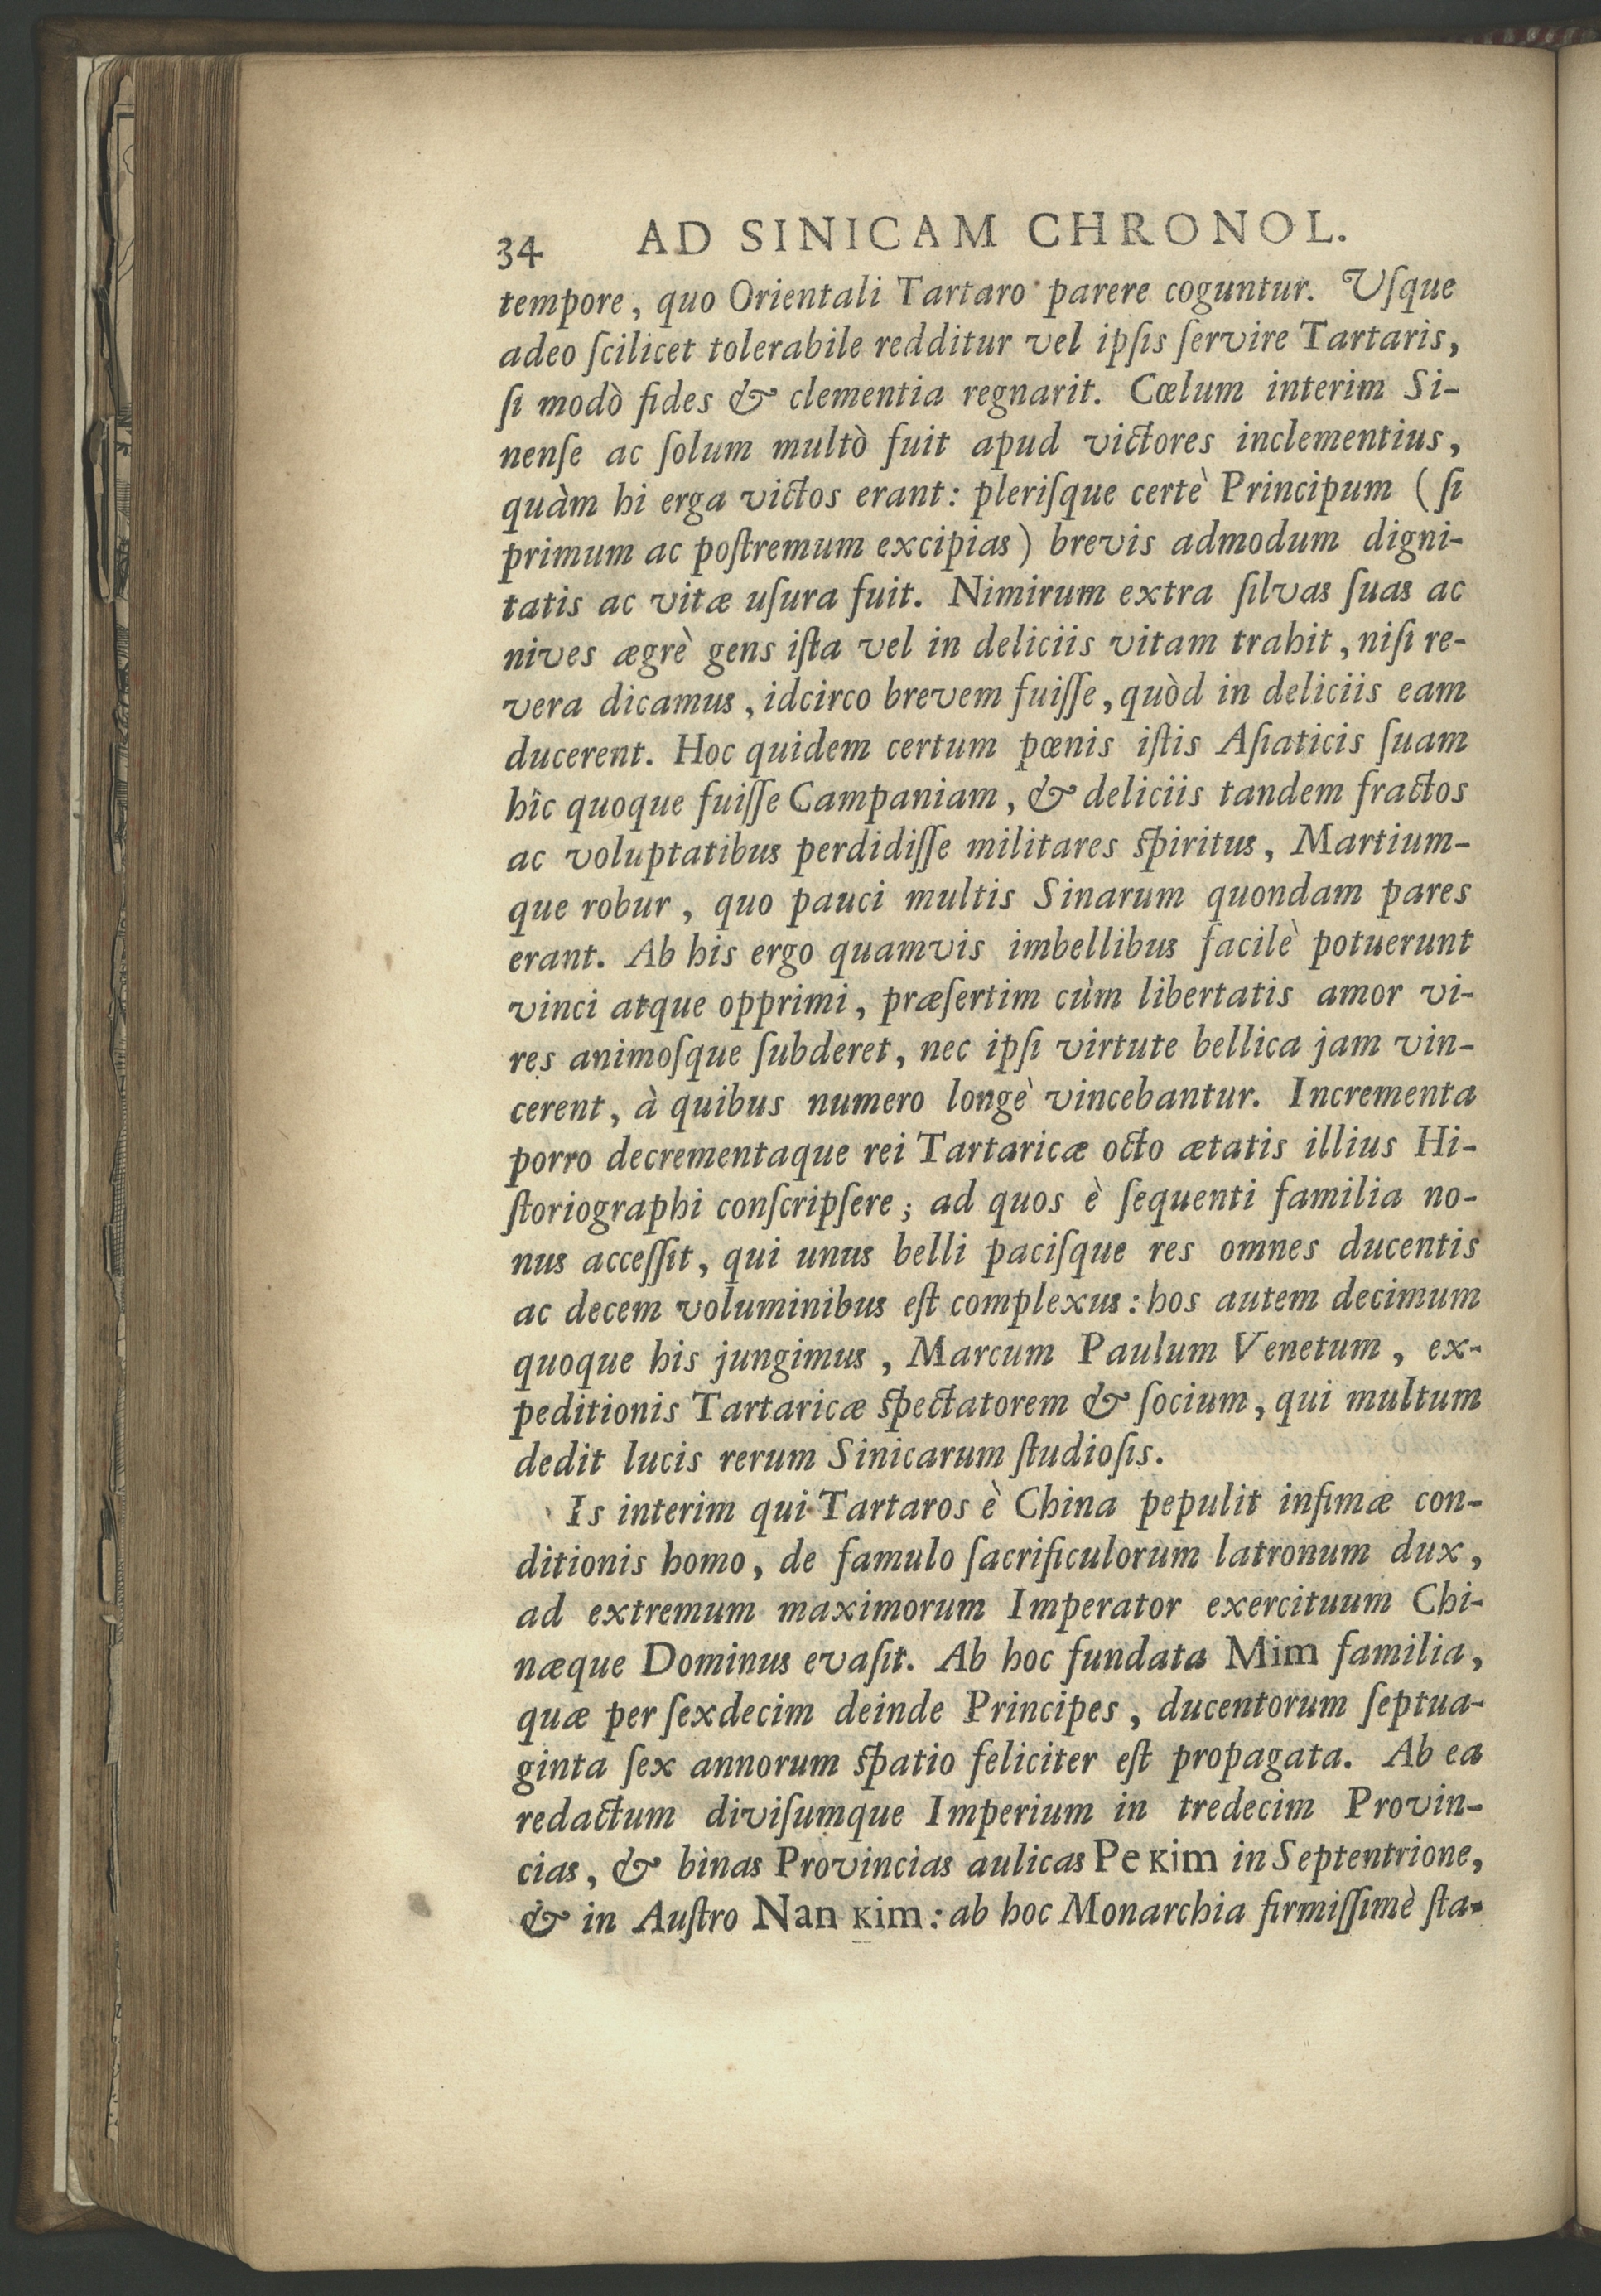 34 AD SINICAM CHRONOL.
tempore, quo Orientali Tartaro parere coguntur. Uſque
adeo ſcilicet tolerabile redditur vel ipſis ſervire Tartaris,
ſi modò fides & clementia regnarit. Cœlum interim Si-
nenſe ac ſolum multò fuit apud victores inclementius,
quàm hi erga victos erant: pleriſque certè Principum (ſi
primum ac poſtremum excipias) brevis admodum digni-
tatis ac vitæ uſura fuit. Nimirum extra ſilvas ſuas ac
nives ægrè gens iſta vel in deliciis vitam trahit, niſi re-
vera dicamus, idcirco brevem fuiſſe, quòd in deliciis eam
ducerent. Hoc quidem certum pœnis iſtis Aſiaticis ſuam
hîc quoque fuiſſe Campaniam, & deliciis tandem fractos
ac voluptatibus perdidiſſe militares ſpiritus, Martium-
que robur, quo pauci multis Sinarum quondam pares
erant. Ab his ergo quamvis imbellibus facilè potuerunt
vinci atque opprimi, præſertim cùm libertatis amor vi-
res animoſque ſubderet, nec ipſi virtute bellica jam vin-
cerent, à quibus numero longè vincebantur. Incrementa
porro decrementaque rei Tartaricæ octo ætatis illius Hi-
ſtoriographi conſcripſere; ad quos è ſequenti familia no-
nus acceſſit, qui unus belli paciſque res omnes ducentis
ac decem voluminibus eſt complexus: hos autem decimum
quoque his jungimus, Marcum Paulum Venetum, ex-
peditionis Tartaricæ ſpectatorem & ſocium, qui multum
dedit lucis rerum Sinicarum ſtudioſis.
Is interim qui Tartaros è China pepulit infimæ con-
ditionis homo, de famulo ſacrificulorum latronum dux,
ad extremum maximorum Imperator exercituum Chi-
næque Dominus evaſit. Ab hoc fundata Mim familia,
quæ per ſexdecim deinde Principes, ducentorum ſeptua-
ginta ſex annorum ſpatio feliciter eſt propagata. Ab ea
redactum diviſumque Imperium in tredecim Provin-
cias, & binas Provincias aulicas Pe kim in Septentrione,
& in Auſtro Nan kim: ab hoc Monarchia firmiſſimè ſta-